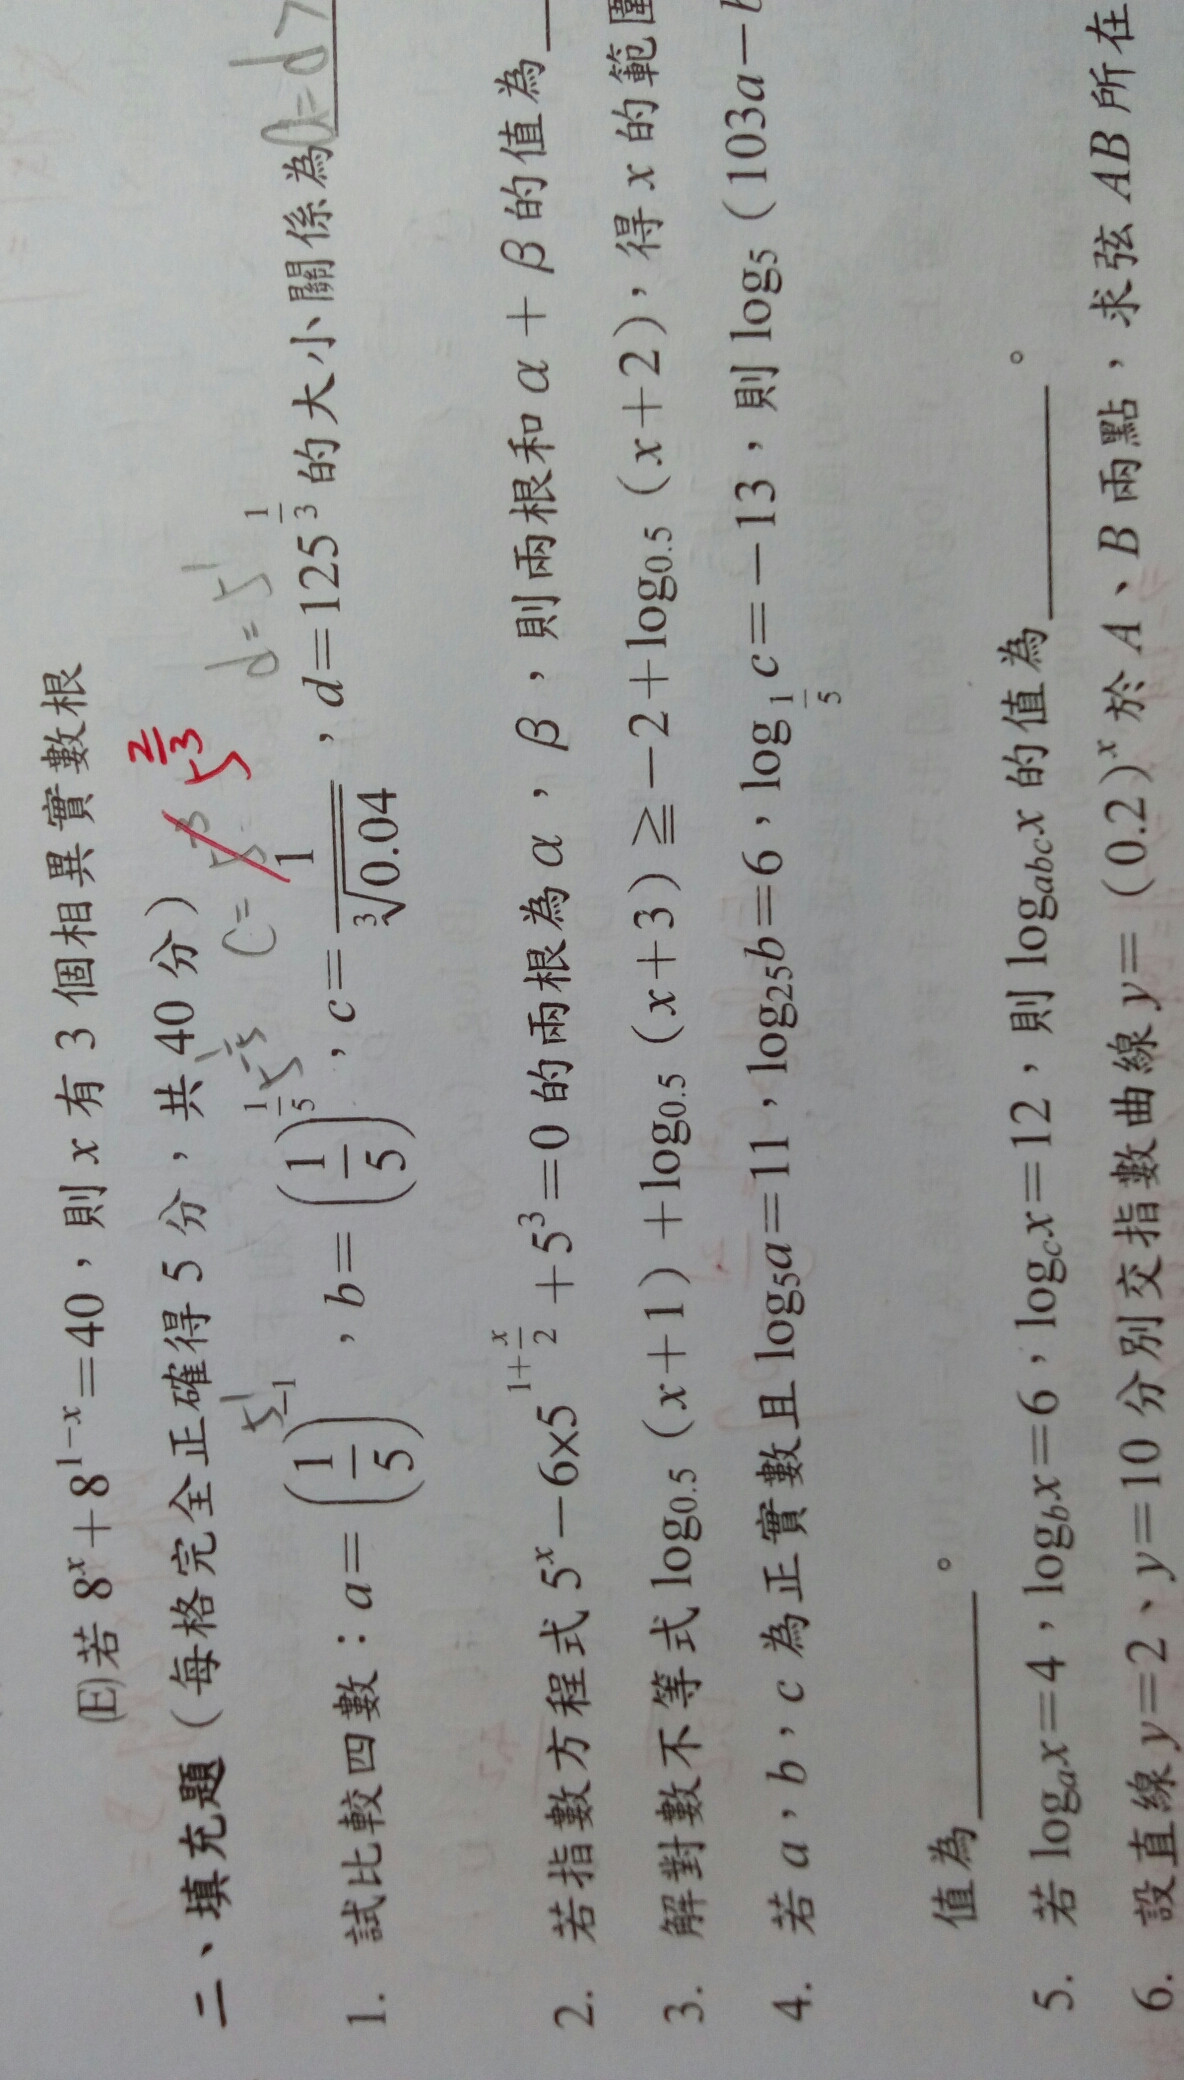 (E)若 8^x+8^{1-x}=40，則 x 有 3 個相異實數根
二、填充題（每格完全正確得 5 分，共 40 分）
5^1 5^{-\frac{1}{5}} C= 5^{\frac{2}{3}} d=5^1
1. 試比較四數：a=(\frac{1}{5})^{-1}，b=(\frac{1}{5})^{\frac{1}{5}}，c=\frac{1}{\sqrt[3]{0.04}}，d=125^{\frac{1}{3}} 的大小關係為 a=d>
2. 若指數方程式 5^x-6×5^{1+\frac{x}{2}}+5^3=0 的兩根為 α，β，則兩根和 α+β 的值為
3. 解對數不等式 log_{0.5}（x+1）+log_{0.5}（x+3）≧-2+log_{0.5}（x+2），得 x 的範圍
4. 若 a，b，c 為正實數且 log_5a=11，log_{25}b=6，log_{\frac{1}{5}}c=-13，則 log_5（103a-b
值為____。
5. 若 log_ax=4，log_bx=6，log_cx=12，則 log_{abc}x 的值為____。
6. 設直線 y=2、y=10 分別交指數曲線 y=（0.2）^x 於 A、B 兩點，求弦 AB 所在